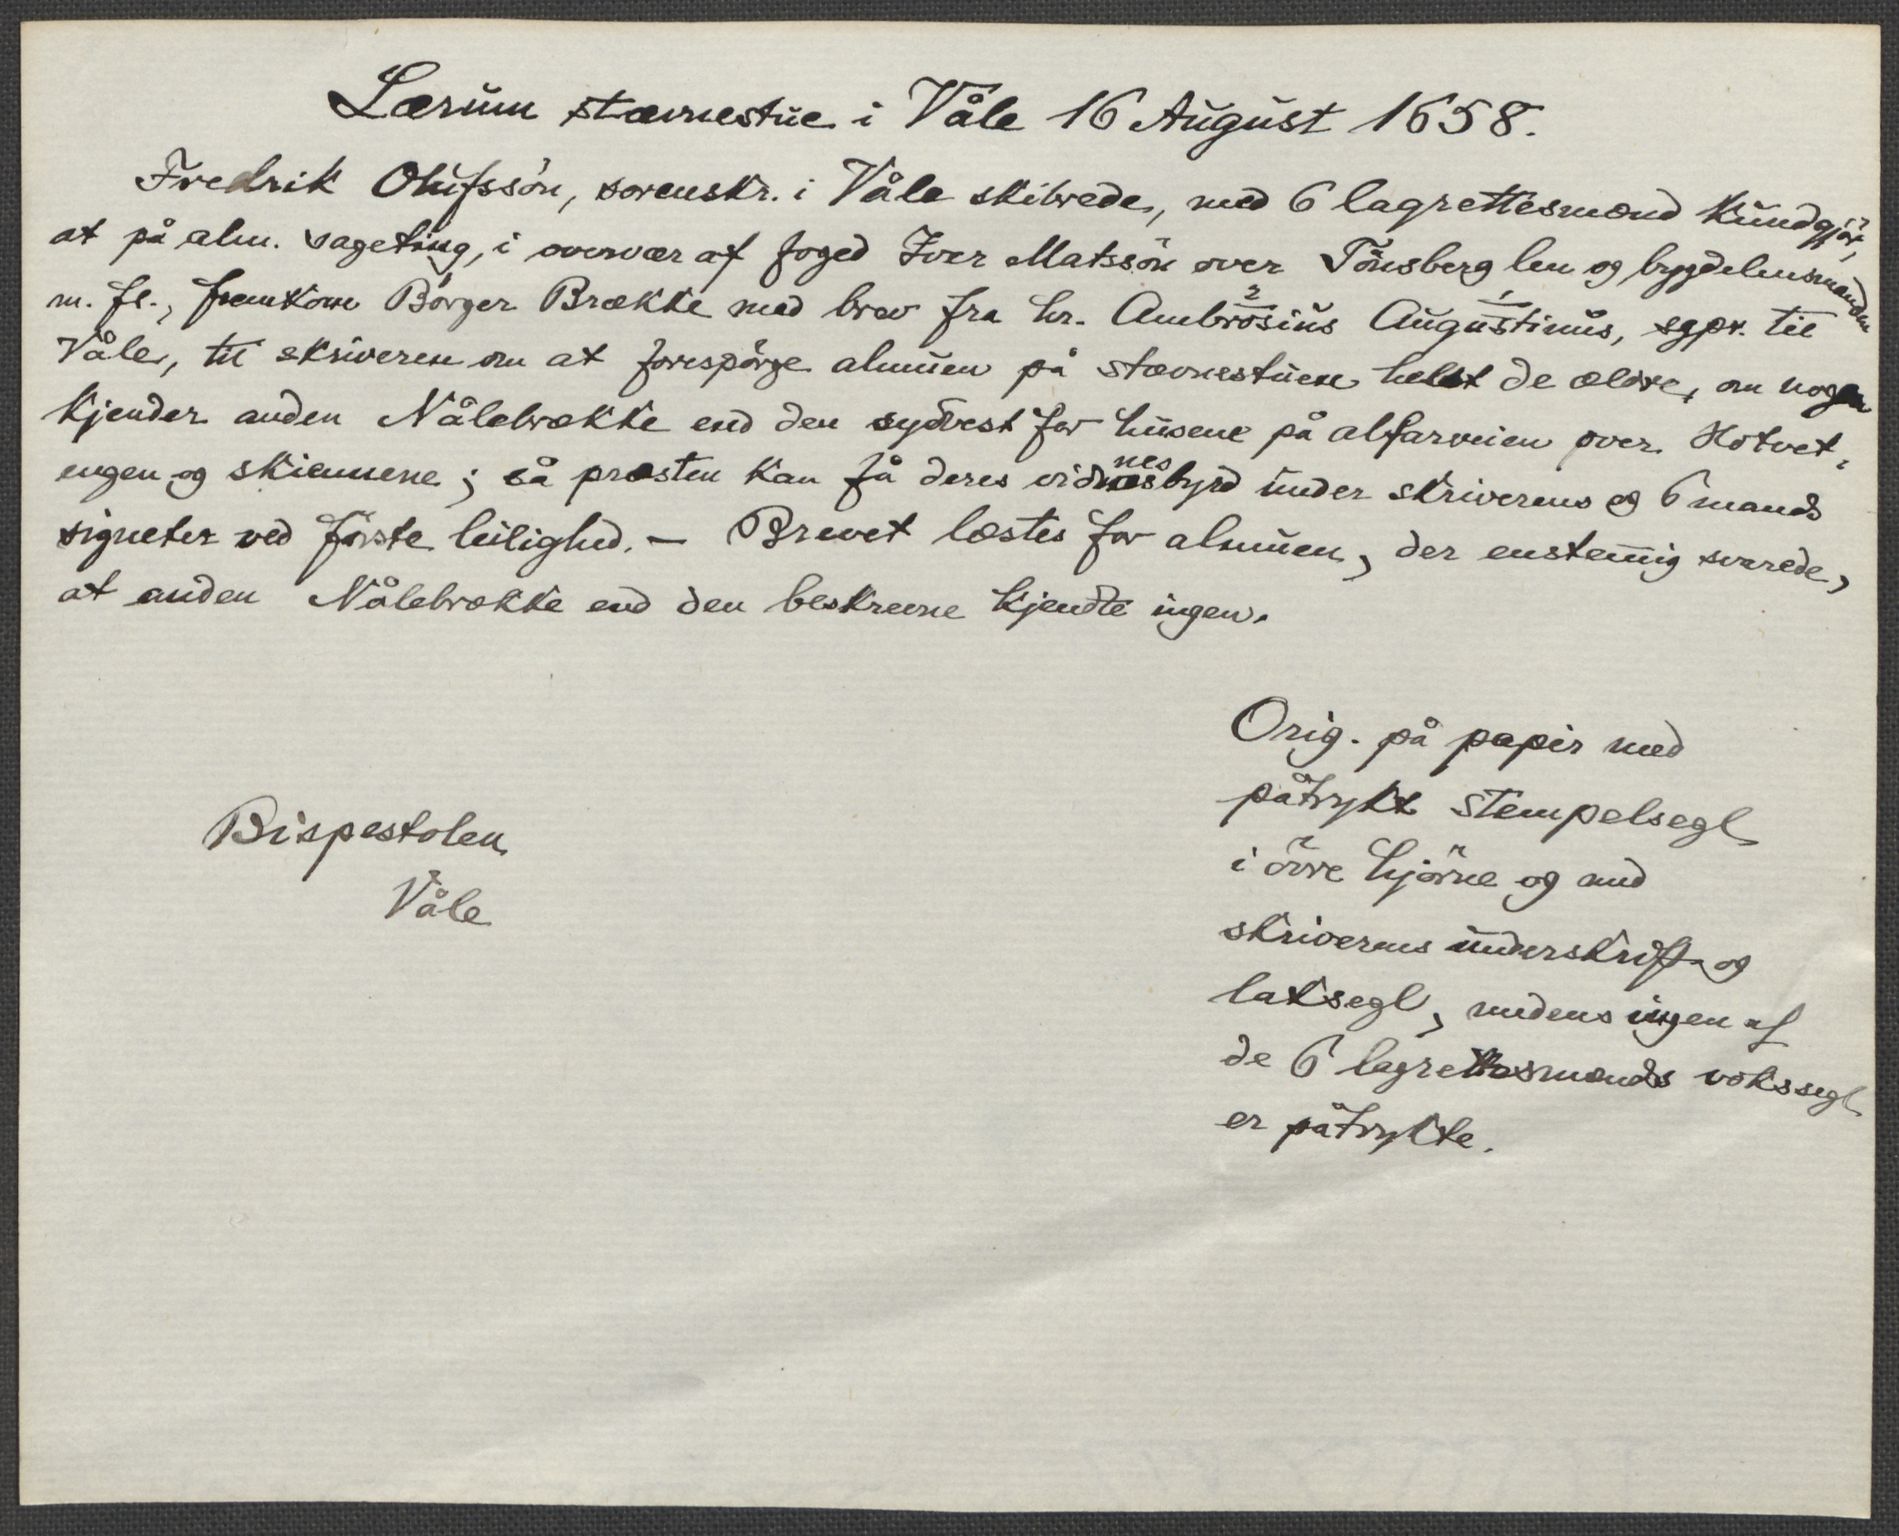 Lærum stævnestue i Våle 16 August 1658.
Fredrik Olufssön, sorenskr. i Våle skibrede, med 6 lagrettesmænd kundgjör,
at på alm. sageting, i overvær af foged Iver Matssön over Tönsberg len og bygdelensmanden
m. fl., fremkom Börger Brække med brev fra hr. Ambrosius 2 Augustinus 1, sgpr. til
Våle, til skriveren om at forespörge almuen på stævnestuen helst de ældre, om nogen
kjender anden Nålebrække end den sydvest for husene på alfarveien over Hotvet-
engen og skiennene; så præsten kan få deres vidnesbyrd under skriverens og 6 mænds
signeter ved förste leilighed. — Brevet læstes for almuen, der enstemig svarede,
at anden Nålebrække end den beskrevne kjendte ingen.
Orig. på papir med
påtrykt stempelsegl
i övre hjörne og med
skriverens underskrift og
laksegl, medens ingen af
de 6 lagrettesmænds vokssegl
er påtrykte.
Bispestolen
Våle